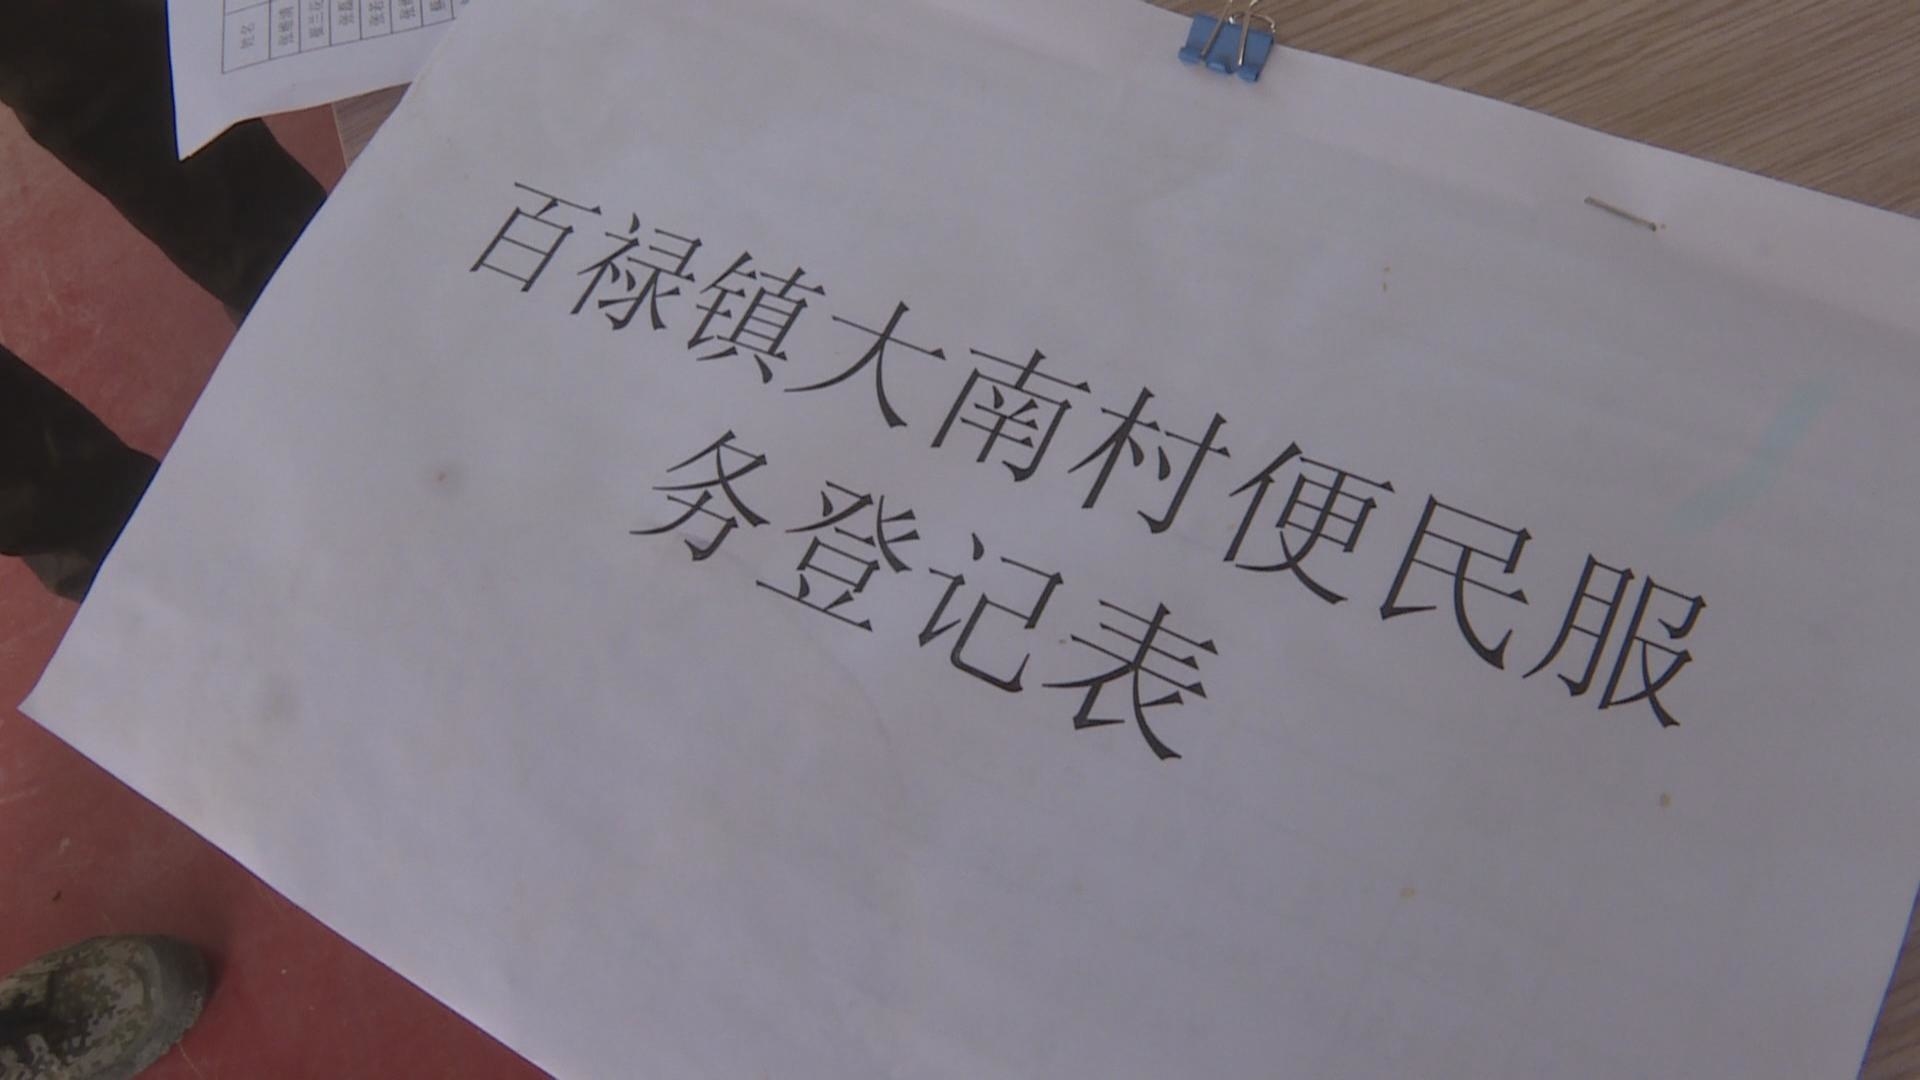 百禄镇大南村便民服
务登记表
姓名